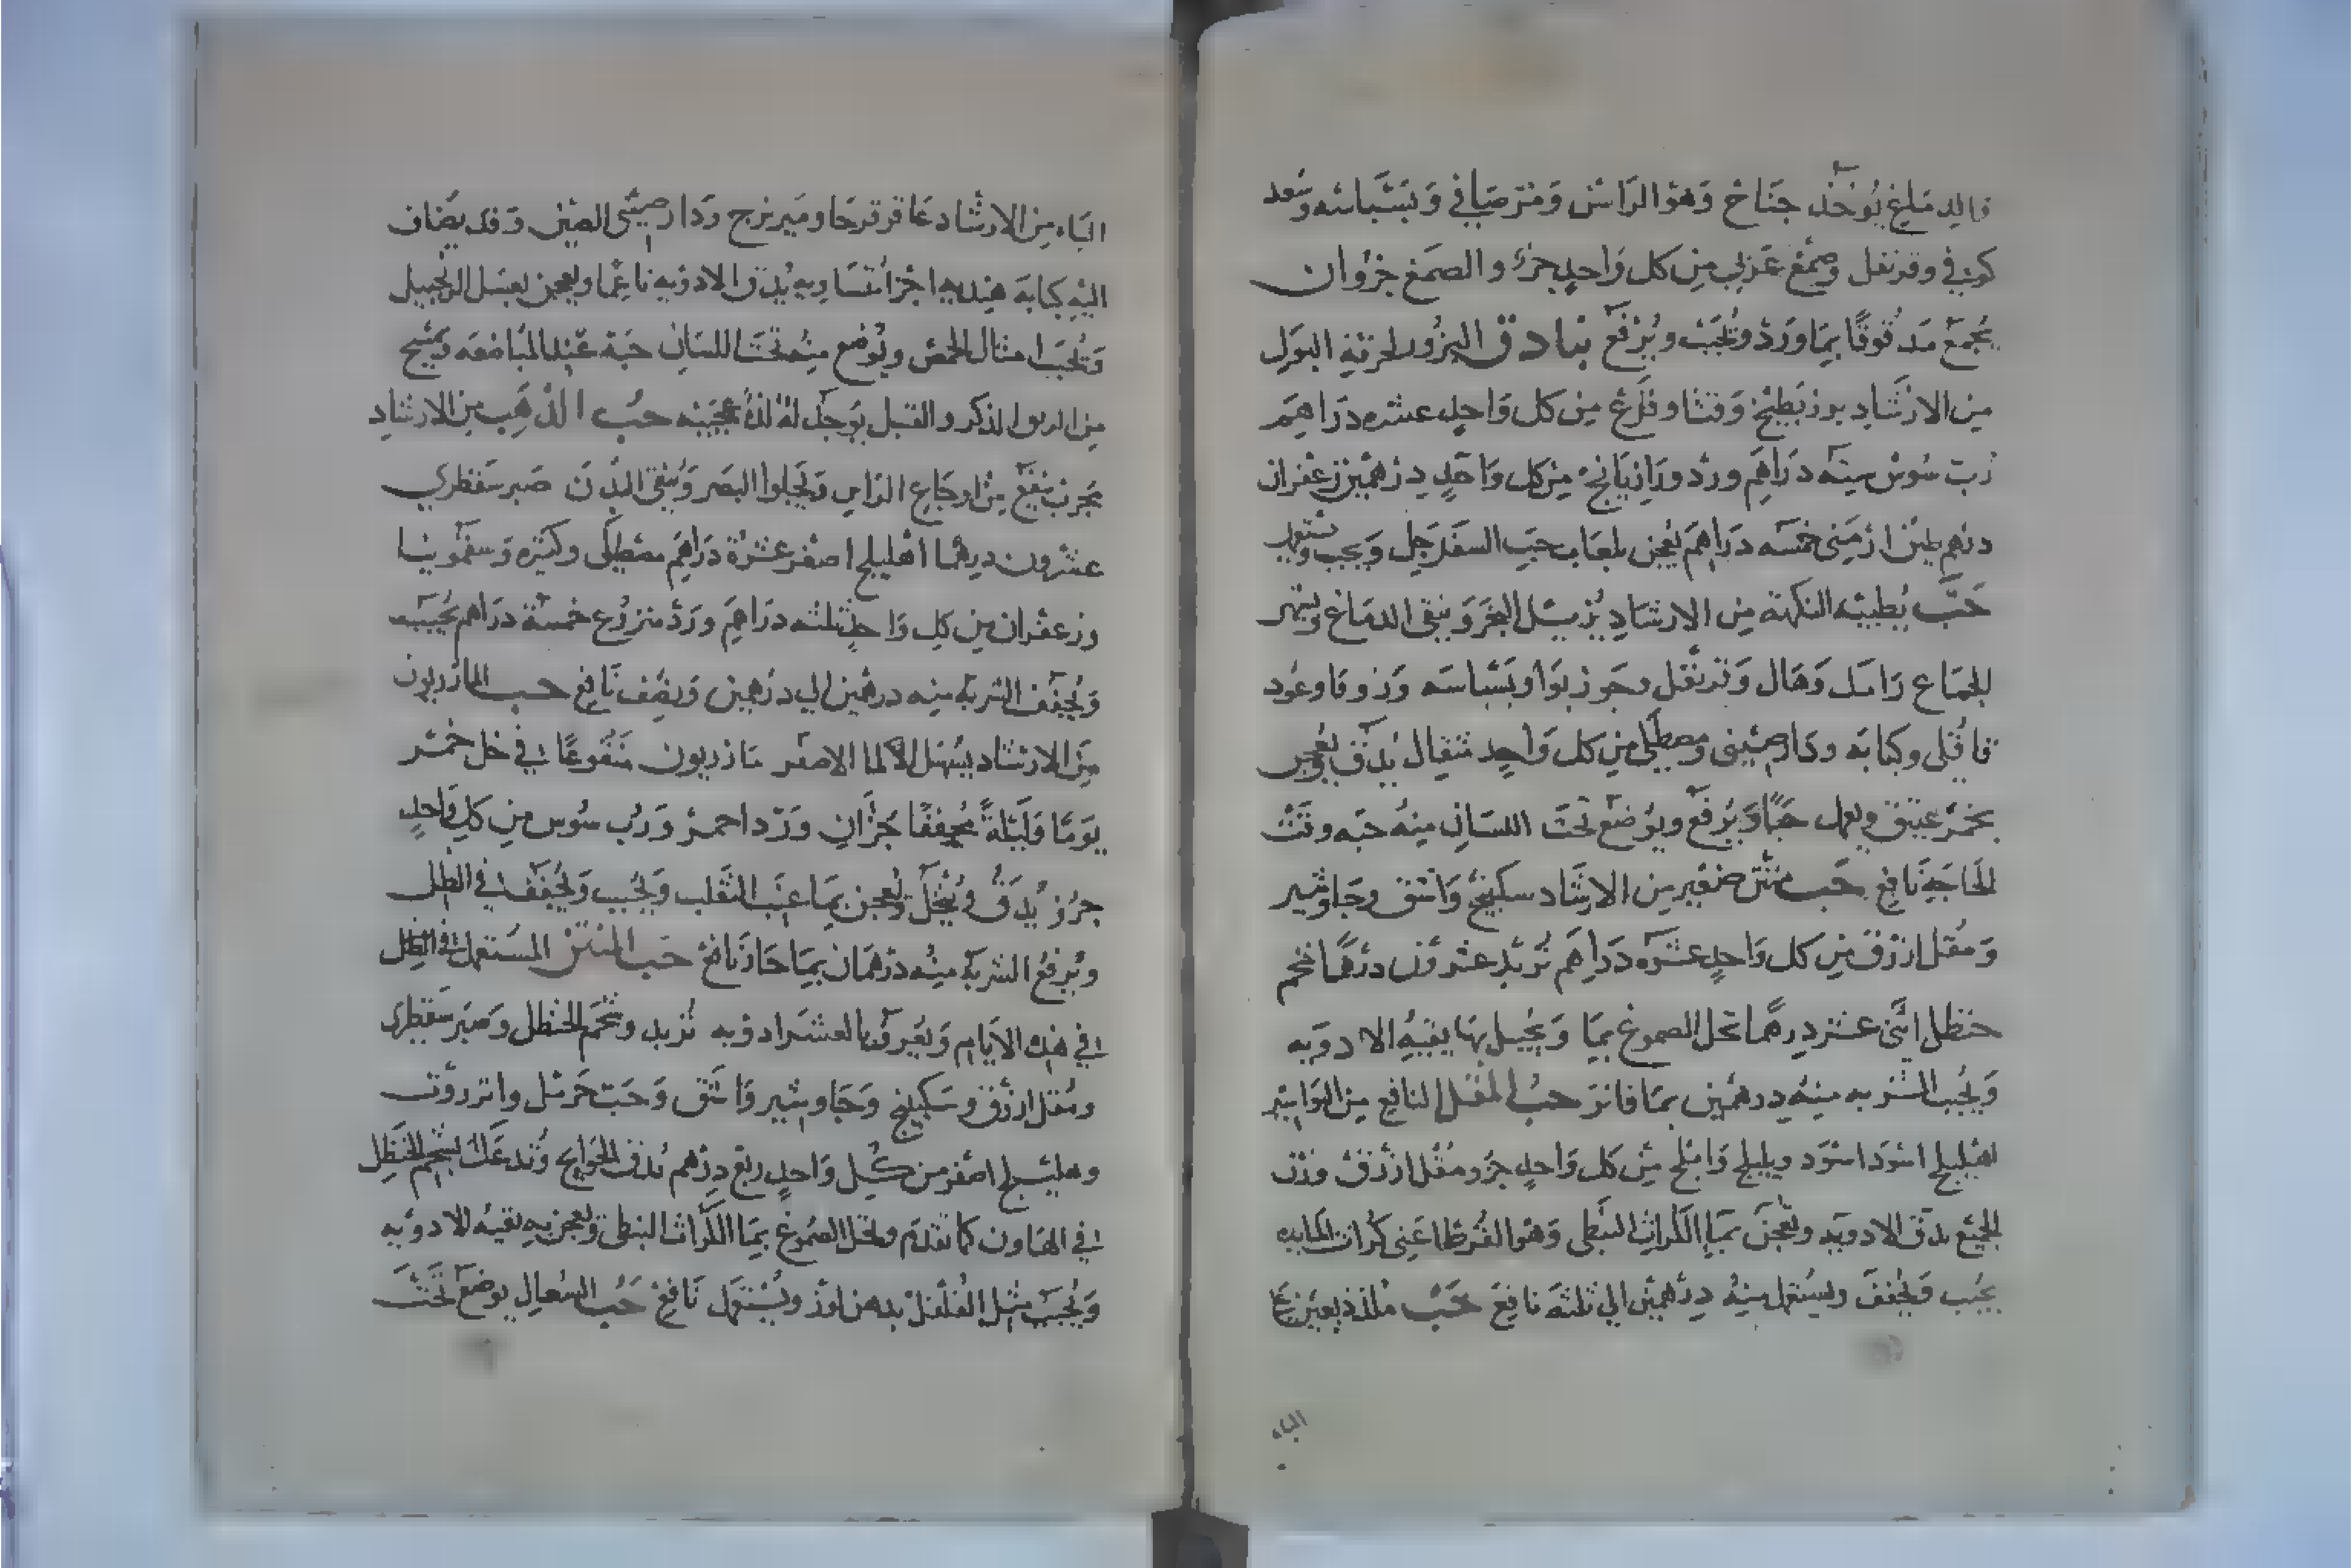 يُؤخَذ جناح وَهوَ الرَاسن وَمر صَافي وَبَسْبَاسَه وسُعد
كوفي وقرنفل وصمغ عَربي مِن كل وَاحدٍ جزؤ والصمغ جزُوان
يجمَع مَدقوقًا بمَا وَردْ ويُحَبَبْ ويُرْفَع بنادق البزُور لحرقةِ البَول
مِن الارشَادِ بزر بطيخ وَقثا وقَرَع مِن كل وَاحدٍ عشره دَرَاهِم
رُبّ سُوسْ ستّه دَرَاهِم وردْ ورَازيَانج مِن كل وَاحدٍ درْهمَين زعْفران
درهم طينْ ارْمَني خمسَه دَرَاهم يُعجن بلعَاب حبّ السفَرجل وَيحبب ويُستعمل
حَبّ يُطيبُ النكهَة مِن الارشادِ يُزيل البَخر وَينقي الدمَاغ
للجمَاع رَامَك وَهَال وَقرَنفل وجَوز بَوَا وبَسْبَاسَه وَعُود
قاقُلى وكبابَه ودَارصِيني ومصطكى مِن كل وَاحِدٍ مثقال يُدَق ويُعجن
بخمْر عَتيق ويعمل حَبًّا وَيُرفَع ويوُضَع تحتَ اللسَانِ مِنهُ حَبه وقتْ
الحَاجَةِ نَافع حَب مُنتن صَغير مِن الارشَاد سكبينج وَاشق وجَاوشير
وَمُقل ازرَق مِن كل وَاحدٍ عشَرَه دَرَاهم تُربد عشرُون درْهمًا شحم
حَنظل اثنَى عشر درهَمًا تحل الصموغ بمَا وَيُجبل بهَا بقيَهُ الادويَه
وَيُحبب الشربه منِهُ درهمَين بمَا فاتر حَبُ المُقل النافع مِن البَوَاسِير
اهليلج اسْوَد وبليلج وَاملج مِنْ كل وَاحدٍ جزو مُقل ازْرَقْ وزن
الجميْع تدق الادويَه وتعجَن بمَاء الكُراث النبَطي وَهُوَ القُرط اعَني كرُاث المَايده
يحَبب وَيُجفف ويسُتعمل مِنهُ درْهَمَيْن الي ثلثَه نافع حَبْ مُلذذ يعين عَلى
الباء
البَاء مِن الارْشاد عَاقر قرحَا ومَيويزج ودَارصيني الصِين وَقد يضَاف
اليْهِ كبَابَه هِنديه اجزا مُتسَاويه تُدَق الادويَه نَاعِمًا ويعجن بعسَل الزنجبيل
وَتُحبَب امثال الحمص ويُوضَع منِهُ تحت اللسَان حَبة عندَ المُبَاضعَه ويمسَح
مِن الريق الذكر والقبل يُوجَد لهُ لذةٌ عجيبَه حَبُ الذهَب مِن الارشَادِ
مجرب ينفَع مِنْ اوجَاع الرَاس ويَجلوا البَصَر وَينقي البَدَن صَبر سقطري
عشرُون درهمًا اهليلج اصْفر عشرَة دَرَاهِم مصْطكى وكثيره وَسقمُونيا
وزعفران مِن كل وَاحدٍ ثلثه درَاهِم ورَدْ منزُوع خمسَة درَاهم يُحبب
وَيُجفف الشربه مِنه درهَمين الى درهمين وَنصْف نَافع حَب المَازريون
مِن الارشاد يسُهل المَا الاصفر مَازريون مَنقوعًا في خَل خَمْر
يومًا وَلَيْلةً مُجففًا جزآن وَرد احمر وَرُب سُوس مِن كل وَاحدٍ
جزؤ يُدَق ويُنخَل ويُعجن بمَا عِنَب الثعلب وَيُحبب وَيُجفف في الظل
ويُرفعُ الشربَه مِنهُ درْهَمان بمَا حَار نَافعْ حَب المُنتن المسُتعمل في
في هذِه الايَام وَيُعرفُ بالعشَرَادويه تُربد وشحم الحَنظل وصَبر سقطرى
ومُقل ازْرَق وسَكبينج وَجَاوشير وَاشق وَحَب حَرمل وانزرُوت
وهليلج اصفر من كل وَاحدٍ ربع درْهم تُدق الحَوايج وتُدعَك بشحم الحَنظَل
في الهَاون كمَا تقدم وتحل الصمُوغ بمَا الكُرَاث النبطي ويُعجن بهِ بقيَه الادويه
وَيُحبب مثِل الفُلفل بدهن لوز ويُسْتعمل نَافع حَبُ السُعال يوضَع تَحتَ